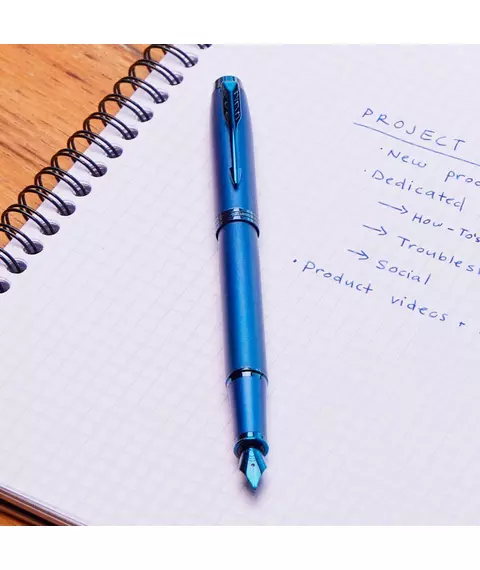 PROJECT
· New
· Dedicated
→ How-To's
→
→ Social
· Product videos +